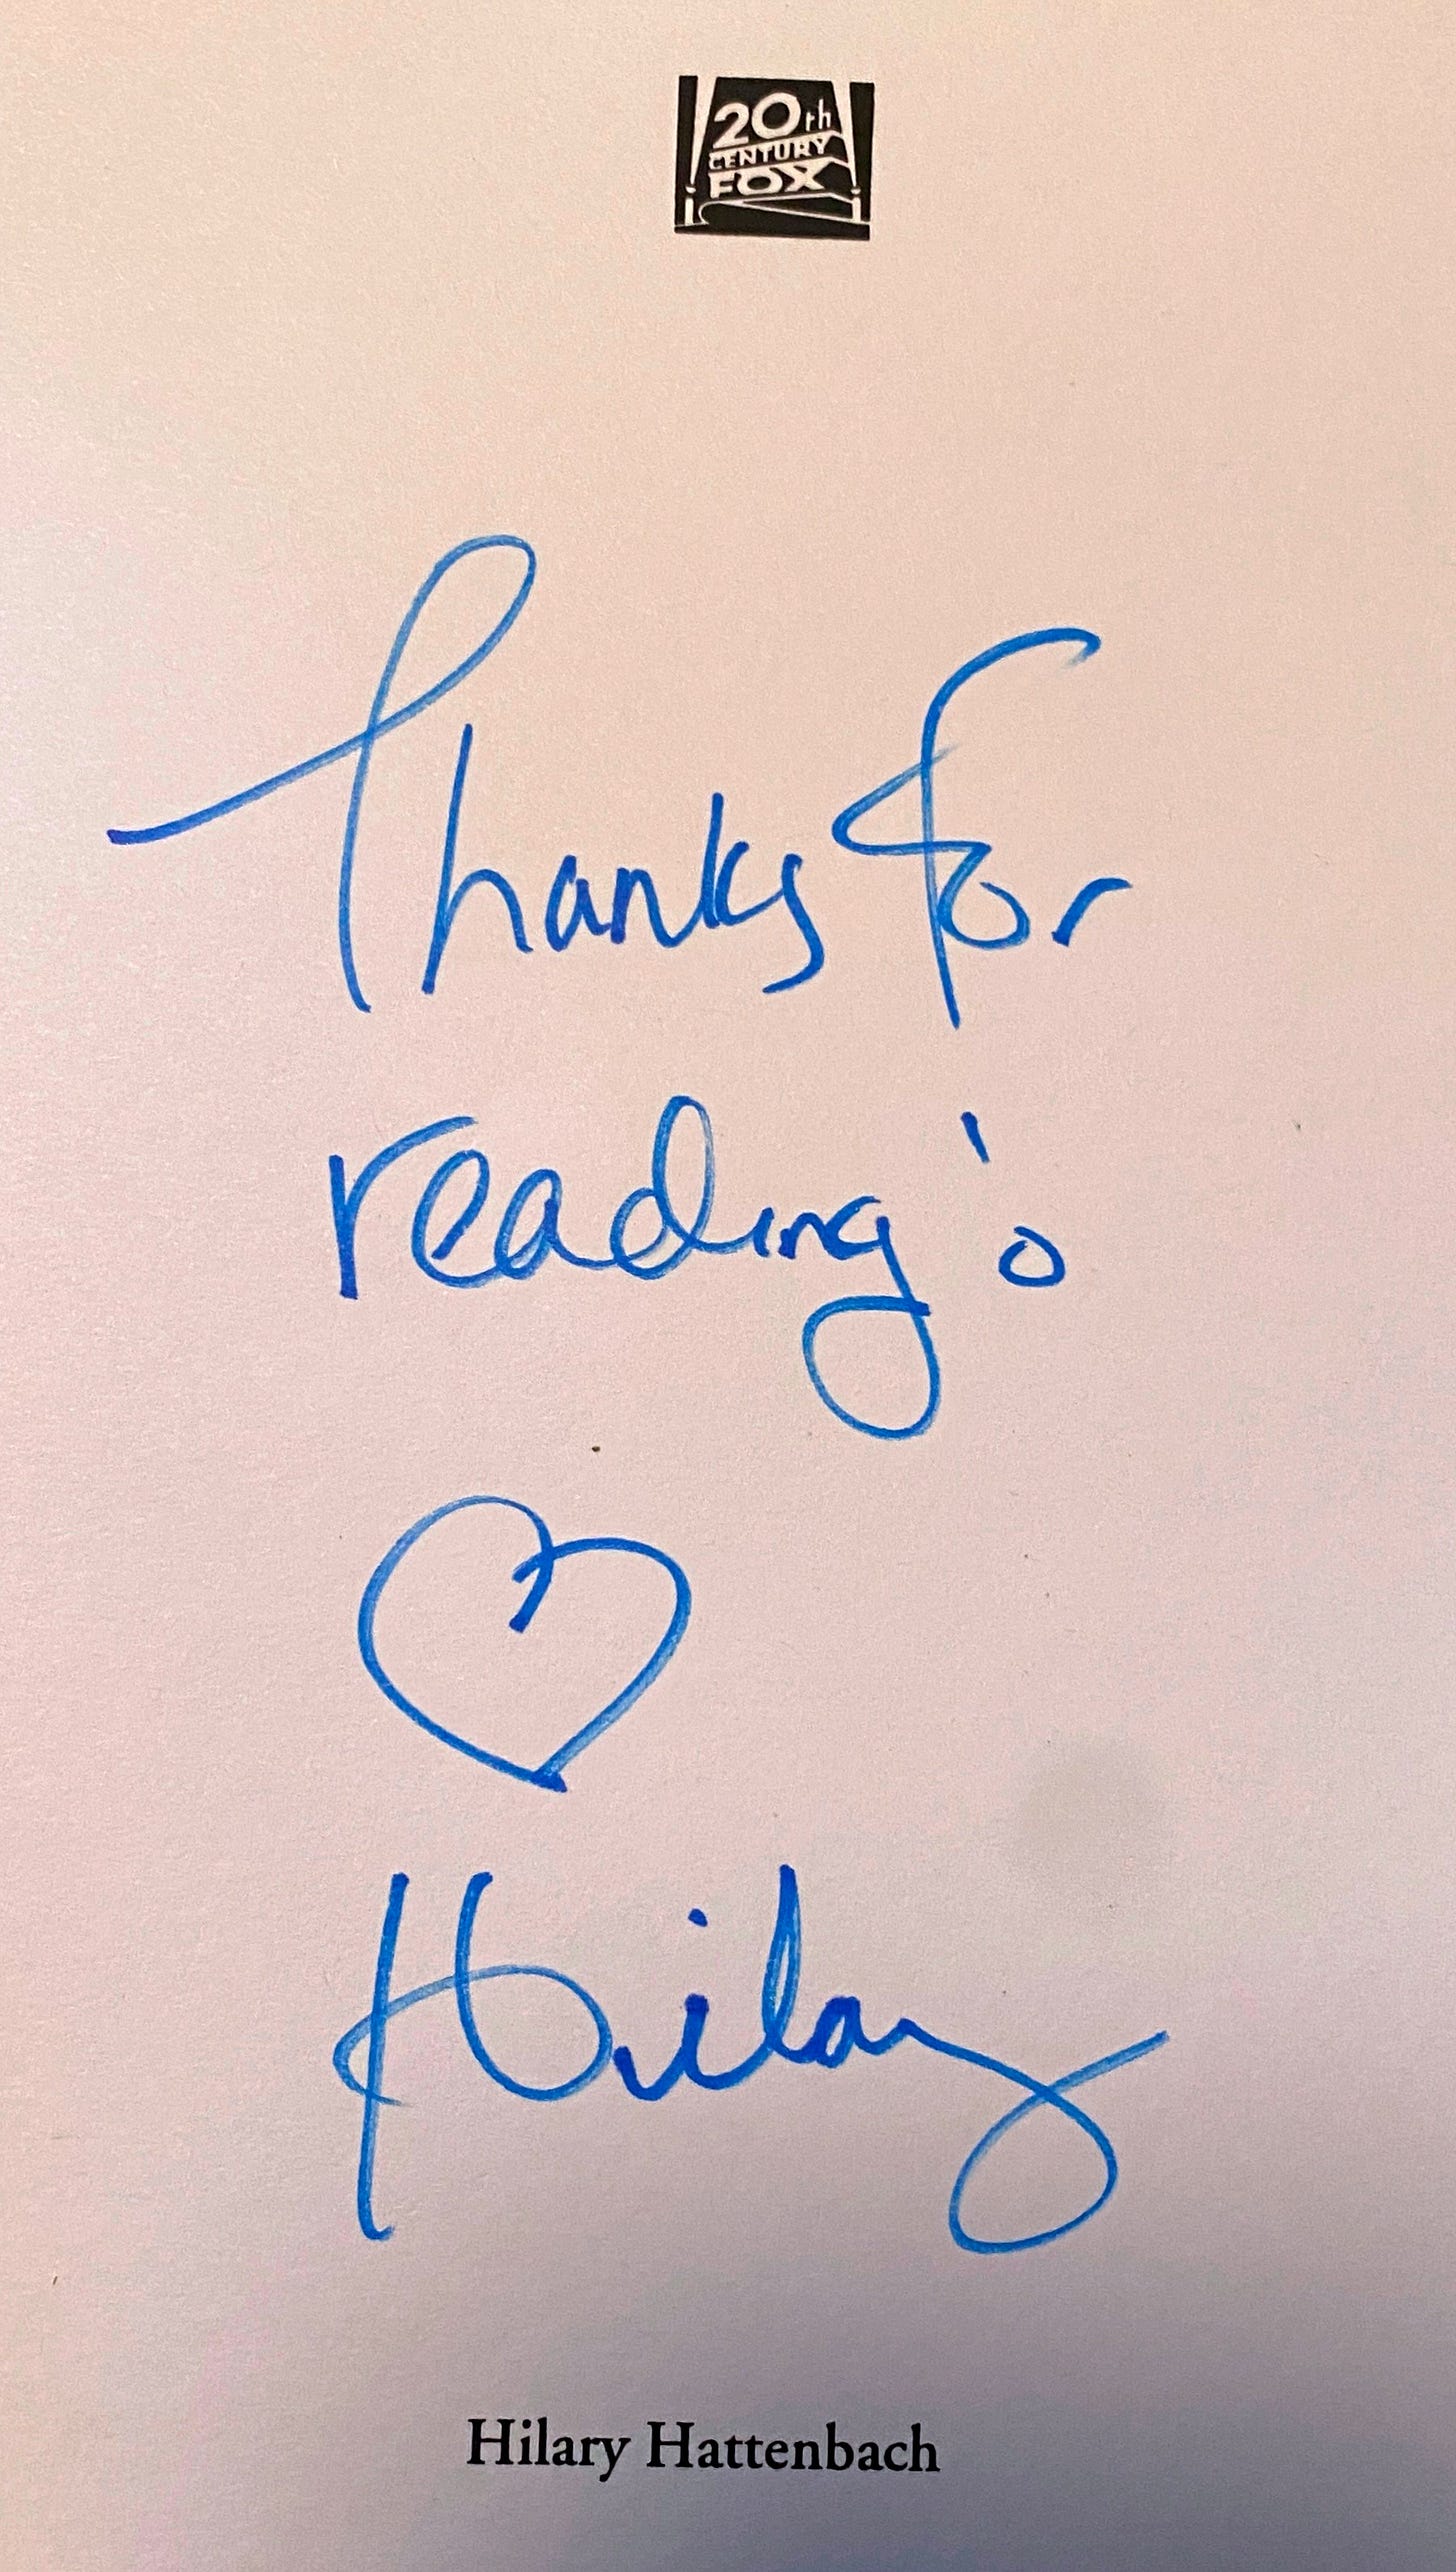 20th
CENTURY
FOX
Thanks for
reading!
♡
Hilary
Hilary Hattenbach